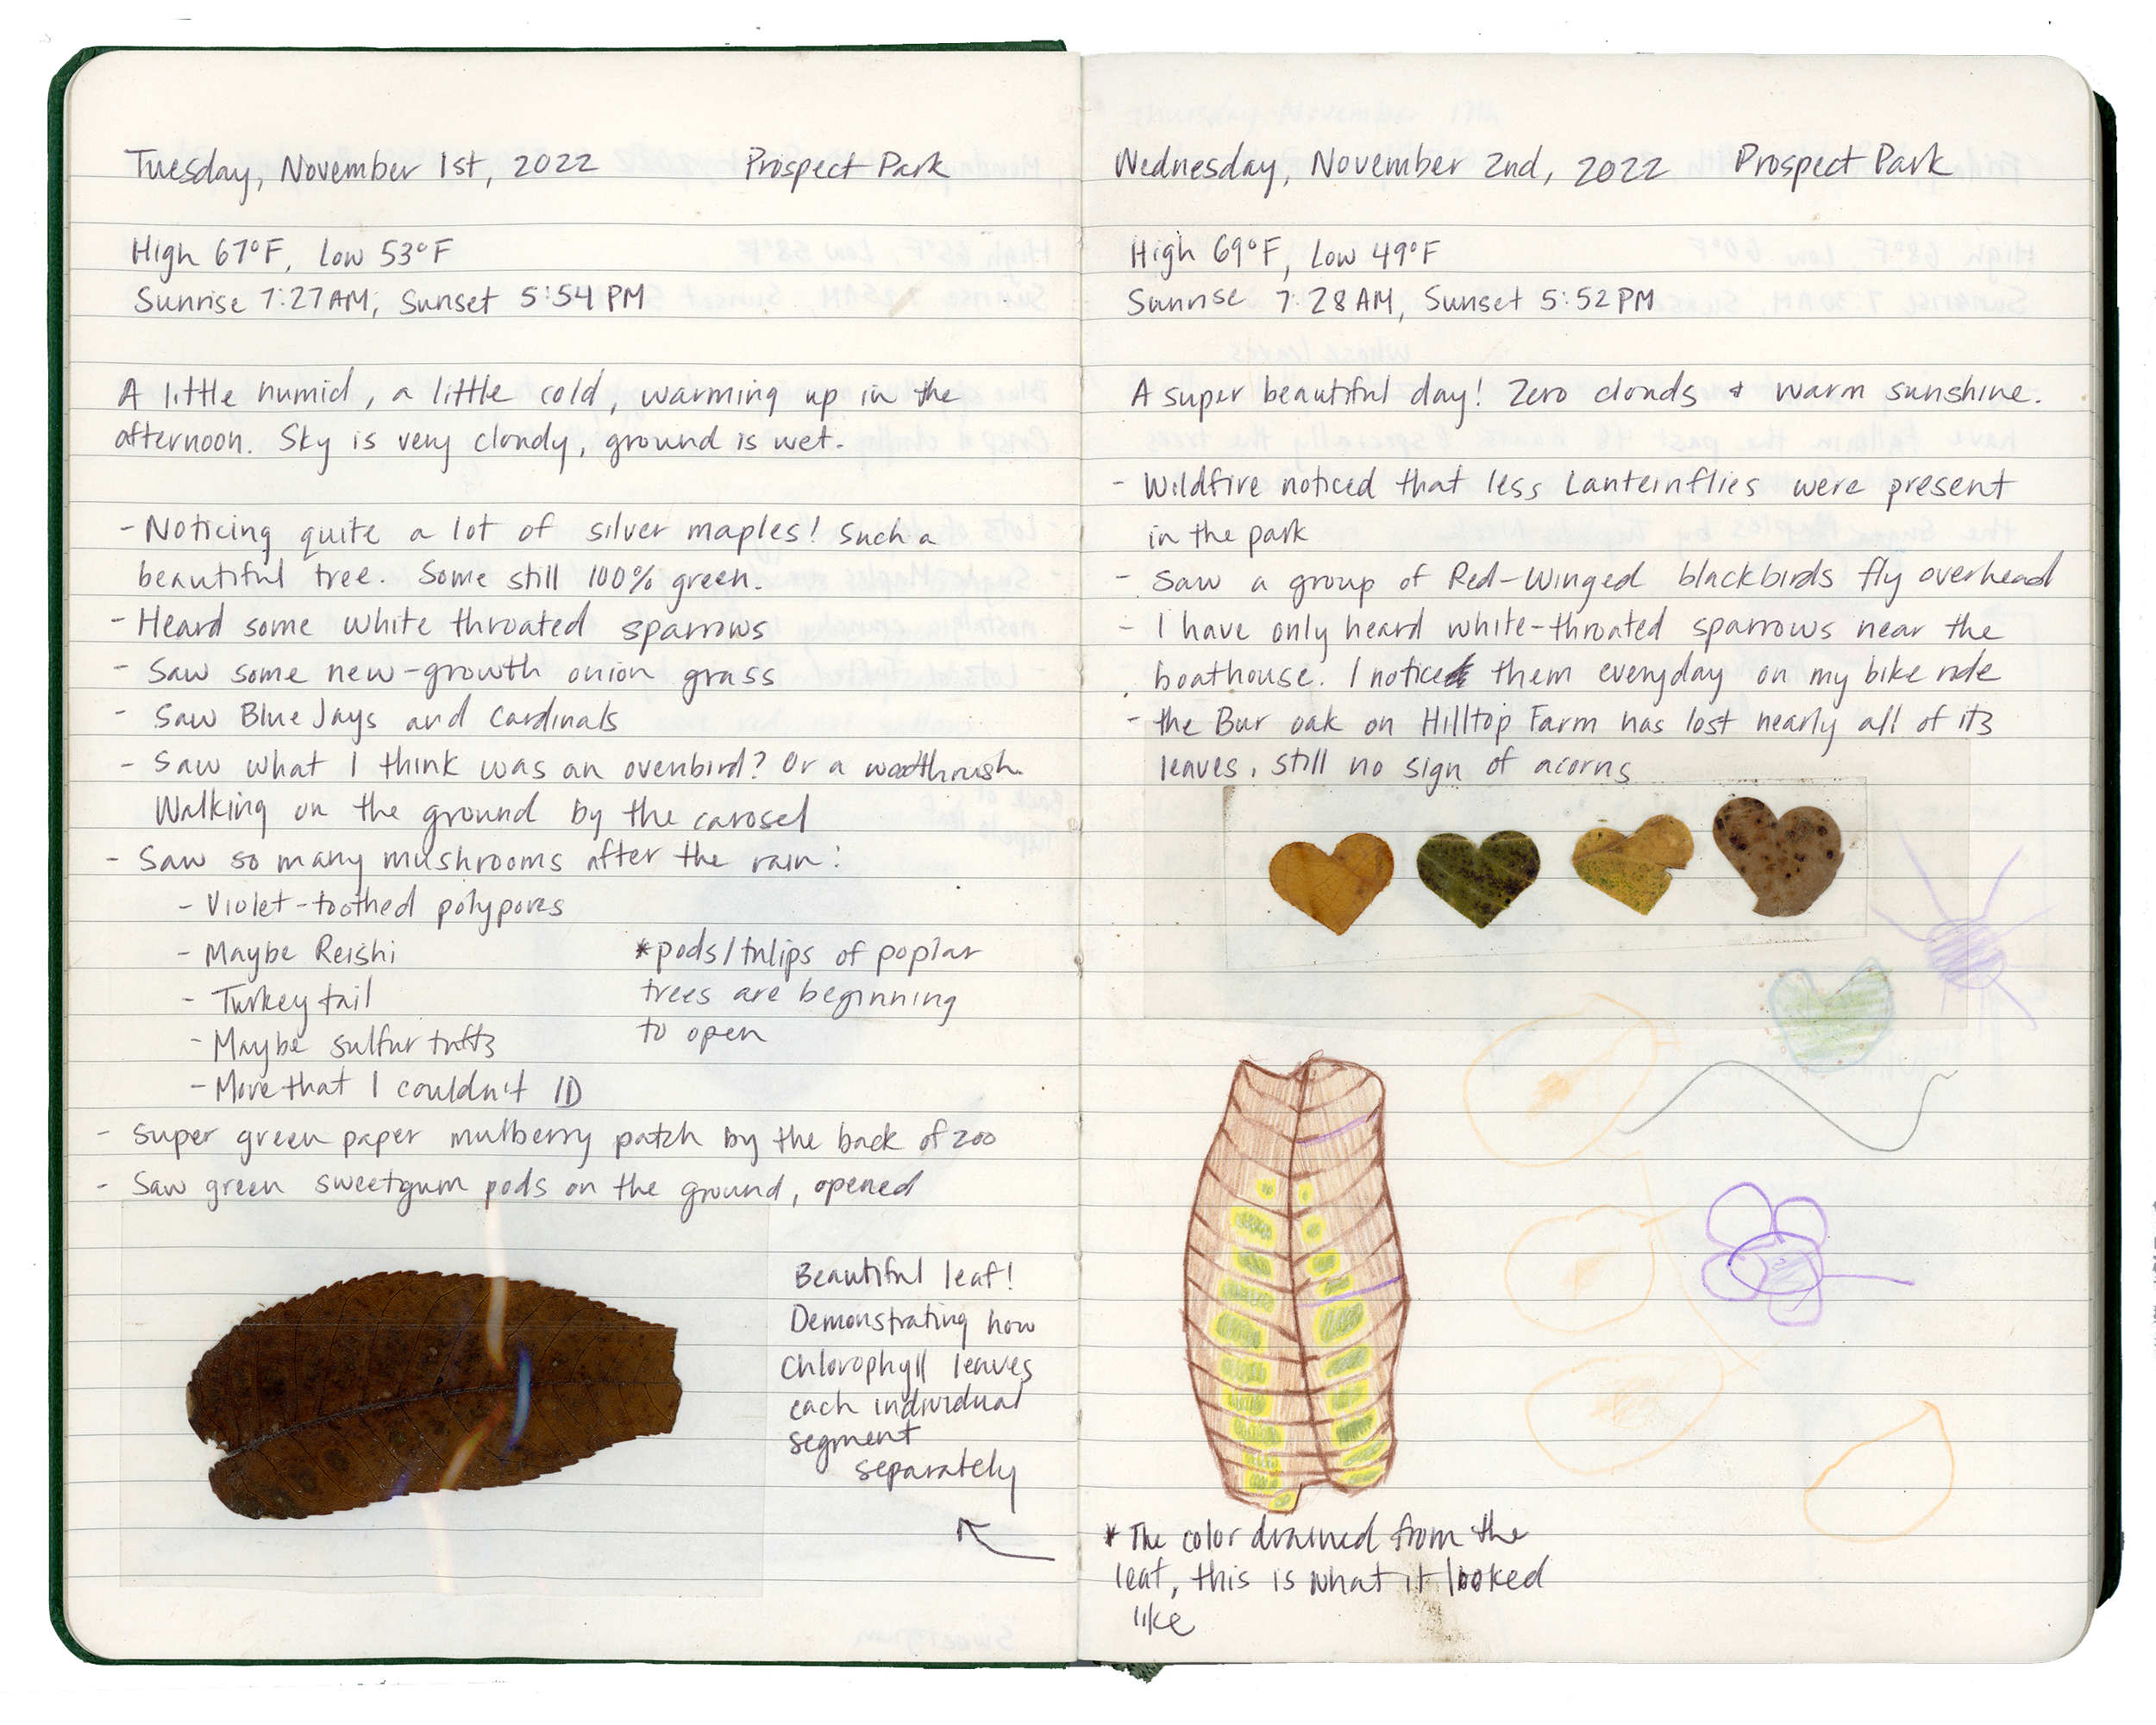 Tuesday, November 1st, 2022 Prospect Park
High 67°F, Low 53°F
Sunrise 7:27AM, Sunset 5:54 PM
A little humid, a little cold, warming up in the
afternoon. Sky is very cloudy, ground is wet.
- Noticing quite a lot of silver maples! Such a
beautiful tree. Some still 100% green.
- Heard some white throated sparrows
- Saw some new-growth onion grass
- Saw Blue Jays and Cardinals
- Saw what I think was an ovenbird? Or a woodthrush.
Walking on the ground by the carosel
- Saw so many mushrooms after the rain:
- Violet-toothed polypores
- Maybe Reishi
- Turkey tail
- Maybe sulfur tufts
- More that I couldn't ID
*pods/tulips of poplar
trees are beginning
to open
- Super green paper mulberry patch by the back of zoo
- Saw green sweetgum pods on the ground, opened
Beautiful leaf!
Demonstrating how
Chlorophyll leaves
each individual
segment
separately
Wednesday, November 2nd, 2022 Prospect Park
High 69°F, Low 49°F
Sunrise 7:28AM, Sunset 5:52PM
A super beautiful day! Zero clouds & warm sunshine.
- Wildfire noticed that less Lanternflies were present
in the park
- Saw a group of Red-Winged blackbirds fly overhead
- I have only heard white-throated sparrows near the
boathouse. I notice them everyday on my bike ride
- the Bur oak on Hilltop Farm has lost nearly all of its
leaves, still no sign of acorns
* The color drained from the
leaf, this is what it looked
like